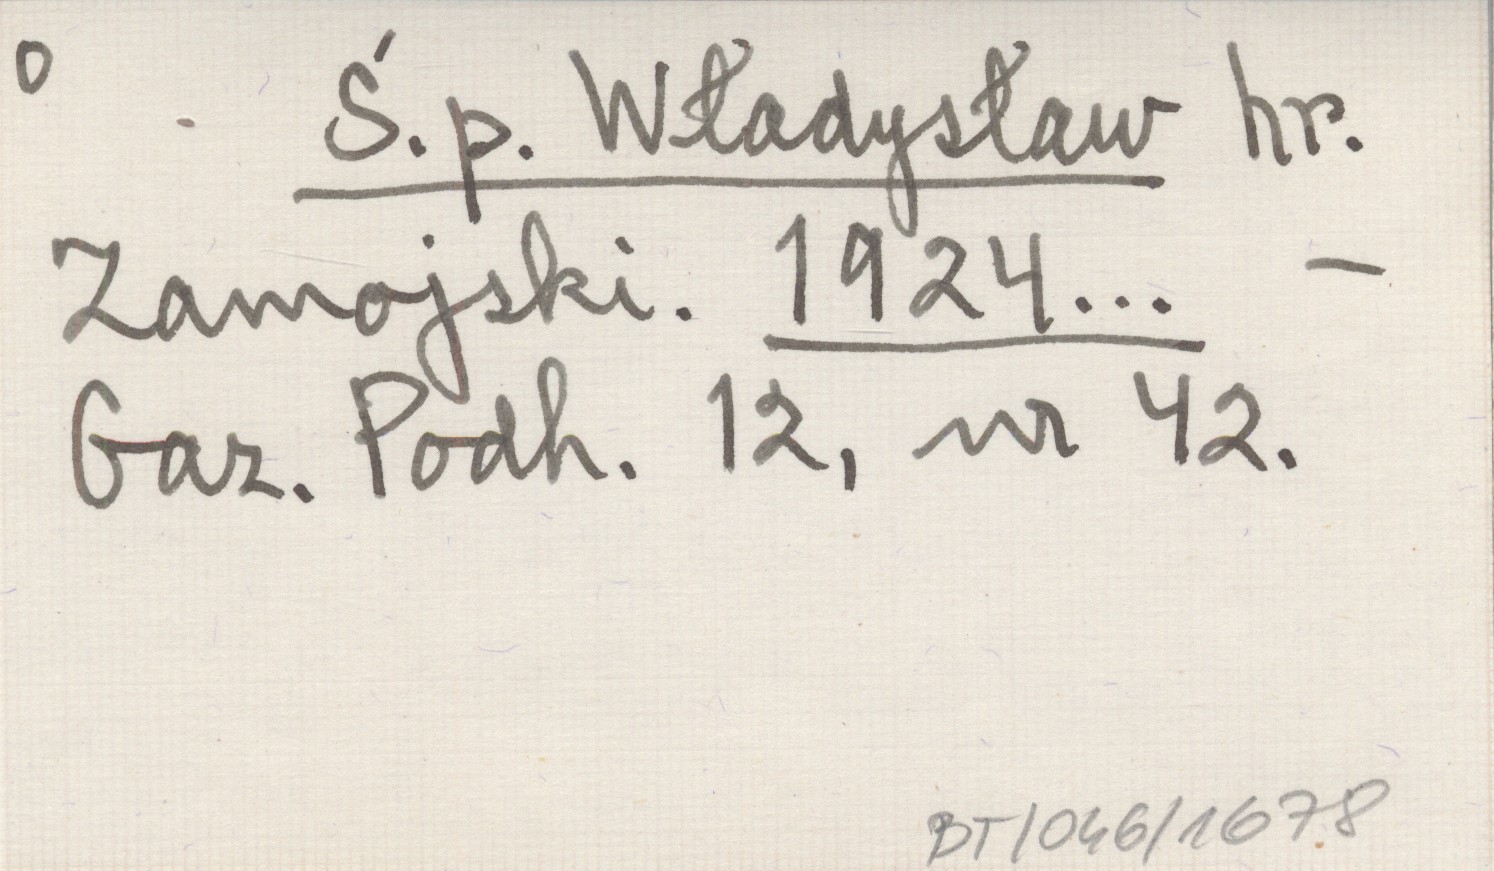 o
Ś.p. Władysław hr.
Zamojski. 1924... –
Gaz. Podh. 12, nr 42.
BT/046/1678